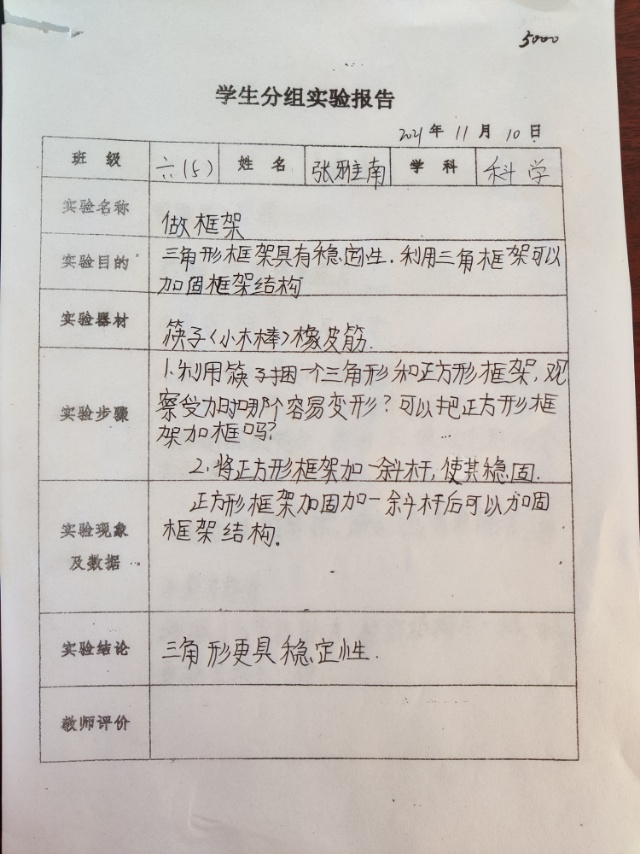 5000
学生分组实验报告
2021年11月10日
班级 六(5) 姓名 张雅南 学科 科学
实验名称 做框架
实验目的 三角形框架具有稳定性.利用三角框架可以
加固框架结构
实验器材 筷子(小木棒)橡皮筋.
实验步骤 1.利用筷子捆一个三角形和正方形框架,观
察受力时哪个容易变形?可以把正方形框
架加框吗?
2.将正方形框架加一斜杆,使其稳固.
实验现象
及数据
正方形框架加固加一斜杆后可以加固
框架结构.
实验结论 三角形更具稳定性.
教师评价